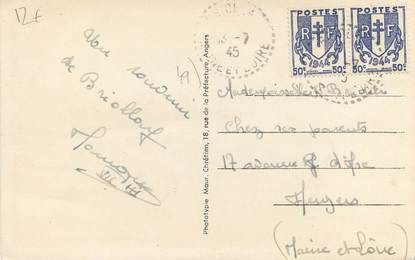 12€
49
Bon souvenir
de Briollay
Phototypie Maur. Chrétien, 18, rue de la Préfecture, Angers
-7
45
ET LOIRE
POSTES
RF
1944
50c 50c
POSTES
RF
1944
50c 50c
Mademoiselle
Chez ses parents
17 avenue
Angers
(Maine et Loire)